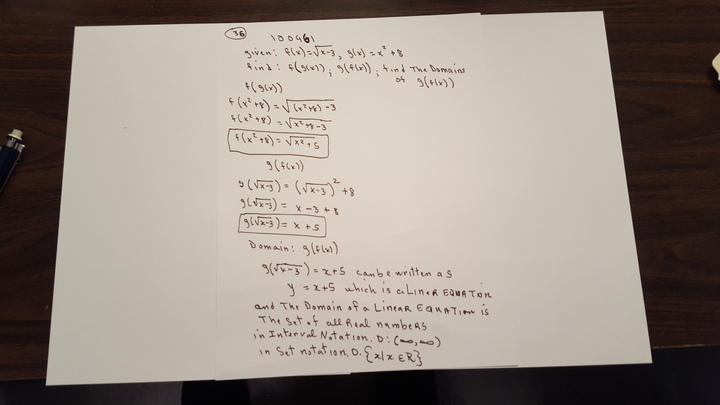 36
100961
given: f(x)=√x-3, g(x)=x²+8
find: f(g(x)), g(f(x)), find The Domains
of g(f(x))
f(g(x))
f(x²+8)=√(x²+8)-3
f(x²+8)=√x²+8-3
f(x²+8)=√x²+5
g(f(x))
g(√x-3)=(√x-3)²+8
g(√x-3)= x-3+8
g(√x-3)= x+5
Domain: g(f(x))
g(√x-3)=x+5 can be written as
y = x+5 which is a LineaR EQUATION
and The Domain of a LineaR EQUATION is
The Set of all Real numbers
in Interval Notation. D: (∞,∞)
in Set notation. D. {x/x ER}